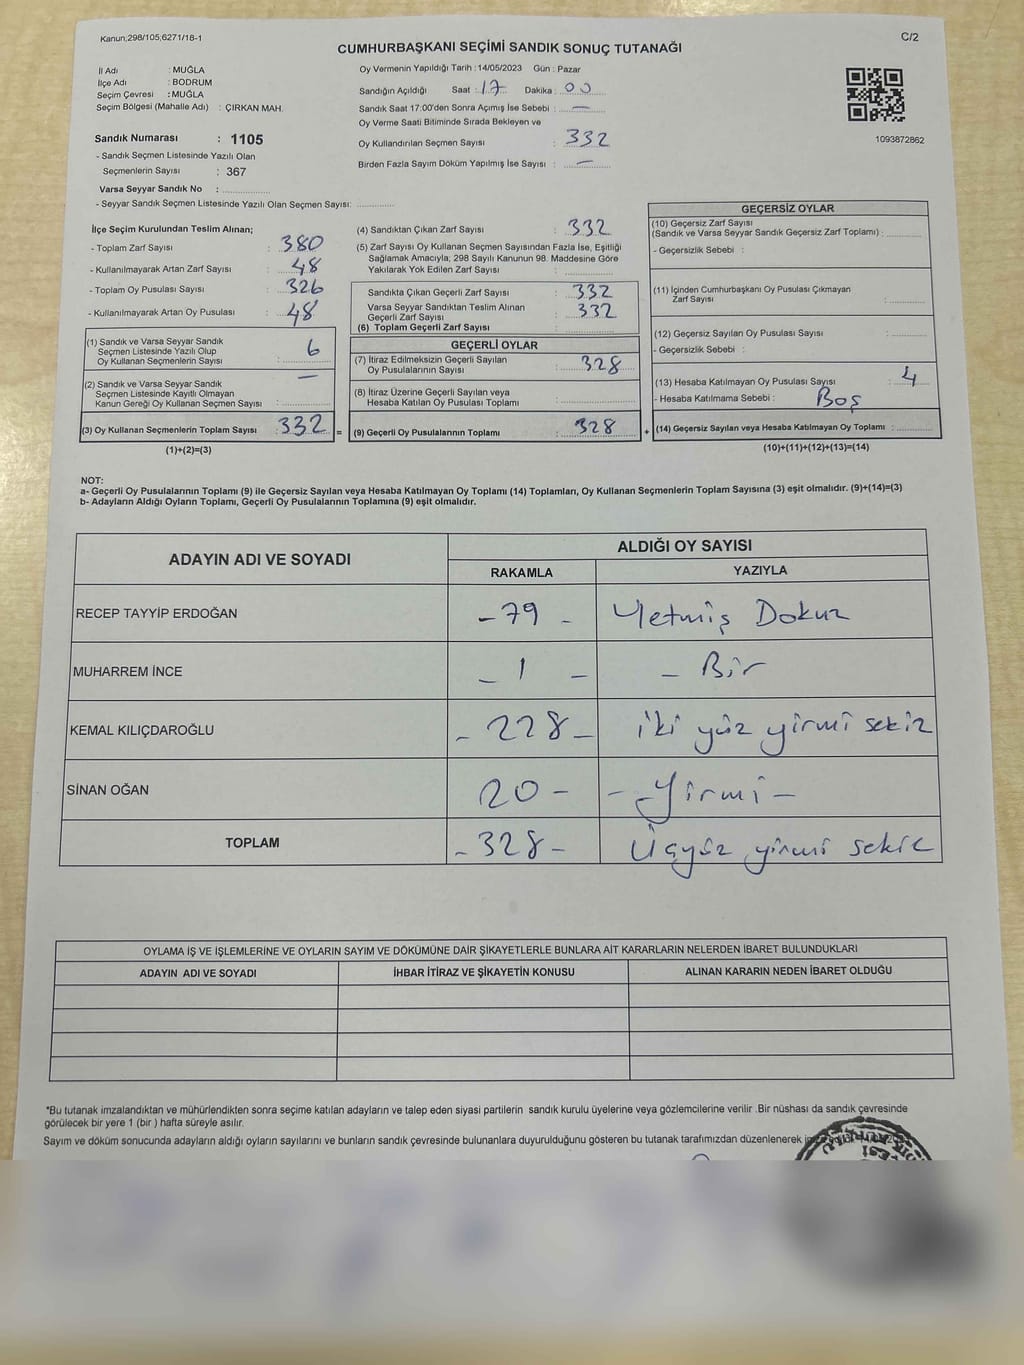 Kanun,298/105,6271/18-1
C/2
CUMHURBAŞKANI SEÇİMİ SANDIK SONUÇ TUTANAĞI
İl Adı : MUĞLA
İlçe Adı : BODRUM
Seçim Çevresi : MUĞLA
Seçim Bölgesi (Mahalle Adı) : ÇIRKAN MAH.
Sandık Numarası : 1105
- Sandık Seçmen Listesinde Yazılı Olan
Seçmenlerin Sayısı : 367
Varsa Seyyar Sandık No :
- Seyyar Sandık Seçmen Listesinde Yazılı Olan Seçmen Sayısı:
Oy Vermenin Yapıldığı Tarih : 14/05/2023 Gün : Pazar
Sandığın Açıldığı Saat : 17 Dakika : 00
Sandık Saat 17:00'den Sonra Açımış İse Sebebi : —
Oy Verme Saati Bitiminde Sırada Bekleyen ve
Oy Kullandırılan Seçmen Sayısı : 332
Birden Fazla Sayım Döküm Yapılmış İse Sayısı : —
1093872862
İlçe Seçim Kurulundan Teslim Alınan;
- Toplam Zarf Sayısı : 380
- Kullanılmayarak Artan Zarf Sayısı : 48
- Toplam Oy Pusulası Sayısı : 326
- Kullanılmayarak Artan Oy Pusulası : 48
(1) Sandık ve Varsa Seyyar Sandık
Seçmen Listesinde Yazılı Olup
Oy Kullanan Seçmenlerin Sayısı : 6
(2) Sandık ve Varsa Seyyar Sandık
Seçmen Listesinde Kayıtlı Olmayan
Kanun Gereği Oy Kullanan Seçmen Sayısı : —
(3) Oy Kullanan Seçmenlerin Toplam Sayısı : 332 =
(1)+(2)=(3)
(4) Sandıktan Çıkan Zarf Sayısı : 332
(5) Zarf Sayısı Oy Kullanan Seçmen Sayısından Fazla İse, Eşitliği
Sağlamak Amacıyla; 298 Sayılı Kanunun 98. Maddesine Göre
Yakılarak Yok Edilen Zarf Sayısı :
Sandıkta Çıkan Geçerli Zarf Sayısı : 332
Varsa Seyyar Sandıktan Teslim Alınan
Geçerli Zarf Sayısı : 332
(6) Toplam Geçerli Zarf Sayısı :
GEÇERLİ OYLAR
(7) İtiraz Edilmeksizin Geçerli Sayılan
Oy Pusulalarının Sayısı : 328
(8) İtiraz Üzerine Geçerli Sayılan veya
Hesaba Katılan Oy Pusulası Toplamı :
(9) Geçerli Oy Pusulalarının Toplamı : 328 +
GEÇERSİZ OYLAR
(10) Geçersiz Zarf Sayısı
(Sandık ve Varsa Seyyar Sandık Geçersiz Zarf Toplamı) :
- Geçersizlik Sebebi :
(11) İçinden Cumhurbaşkanı Oy Pusulası Çıkmayan
Zarf Sayısı :
(12) Geçersiz Sayılan Oy Pusulası Sayısı :
- Geçersizlik Sebebi :
(13) Hesaba Katılmayan Oy Pusulası Sayısı : 4
- Hesaba Katılmama Sebebi : Boş
(14) Geçersiz Sayılan veya Hesaba Katılmayan Oy Toplamı :
(10)+(11)+(12)+(13)=(14)
NOT:
a- Geçerli Oy Pusulalarının Toplamı (9) ile Geçersiz Sayılan veya Hesaba Katılmayan Oy Toplamı (14) Toplamları, Oy Kullanan Seçmenlerin Toplam Sayısına (3) eşit olmalıdır. (9)+(14)=(3)
b- Adayların Aldığı Oyların Toplamı, Geçerli Oy Pusulalarının Toplamına (9) eşit olmalıdır.
ADAYIN ADI VE SOYADI ALDIĞI OY SAYISI
RAKAMLA YAZIYLA
RECEP TAYYİP ERDOĞAN - 79 - Yetmiş Dokuz
MUHARREM İNCE - 1 - - Bir
KEMAL KILIÇDAROĞLU - 228 - iki yüz yirmi sekiz
SİNAN OĞAN 20 - - Yirmi -
TOPLAM - 328 - Üçyüz yirmi sekiz
OYLAMA İŞ VE İŞLEMLERİNE VE OYLARIN SAYIM VE DÖKÜMÜNE DAİR ŞİKAYETLERLE BUNLARA AİT KARARLARIN NELERDEN İBARET BULUNDUKLARI
ADAYIN ADI VE SOYADI İHBAR İTİRAZ VE ŞİKAYETİN KONUSU ALINAN KARARIN NEDEN İBARET OLDUĞU
*Bu tutanak imzalandıktan ve mühürlendikten sonra seçime katılan adayların ve talep eden siyasi partilerin sandık kurulu üyelerine veya gözlemcilerine verilir .Bir nüshası da sandık çevresinde
görülecek bir yere 1 (bir ) hafta süreyle asılır.
Sayım ve döküm sonucunda adayların aldığı oyların sayılarını ve bunların sandık çevresinde bulunanlara duyurulduğunu gösteren bu tutanak tarafımızdan düzenlenerek